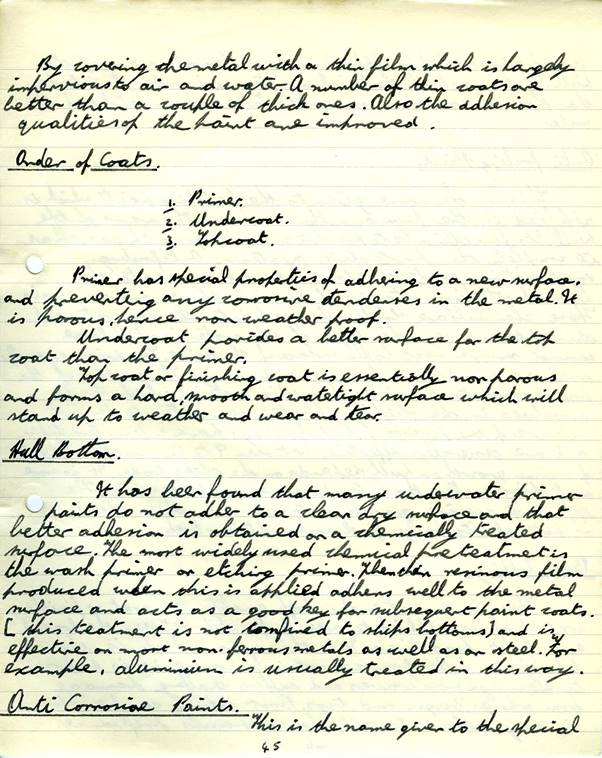 By covering the metal with a thin film which is largely
impervious to air and water. A number of thin coats are
better than a couple of thick ones. Also the adhesion
qualities of the paint are improved.
Order of Coats.
1. Primer.
2. Undercoat.
3. Topcoat.
Primer has special properties of adhering to a new surface.
and preventing any corrosive tendenses in the metal. It
is porous, hence non weather proof.
Undercoat provides a better surface for the top
coat than the primer.
Top coat or finishing coat is essentially non porous
and forms a hard, smooth and watetight surface which will
stand up to weather and wear and tear.
Hull Bottom.
It has been found that many underwater primer
paints do not adher to a clean dry surface and that
better adhesion is obtained on a chemically treated
surface. The most widely used chemical pretreatmet is
the wash primer or etching primer. The thin resinous film
produced when this is applied adhers well to the metal
surface and acts as a good key for subsequent paint coats.
[this teatment is not confined to ships bottoms] and is
effective on most non-ferrous metals as well as on steel. For
example, aluminium is usually treated in this way.
Anti Corrosive Paints.
This is the name given to the special
45